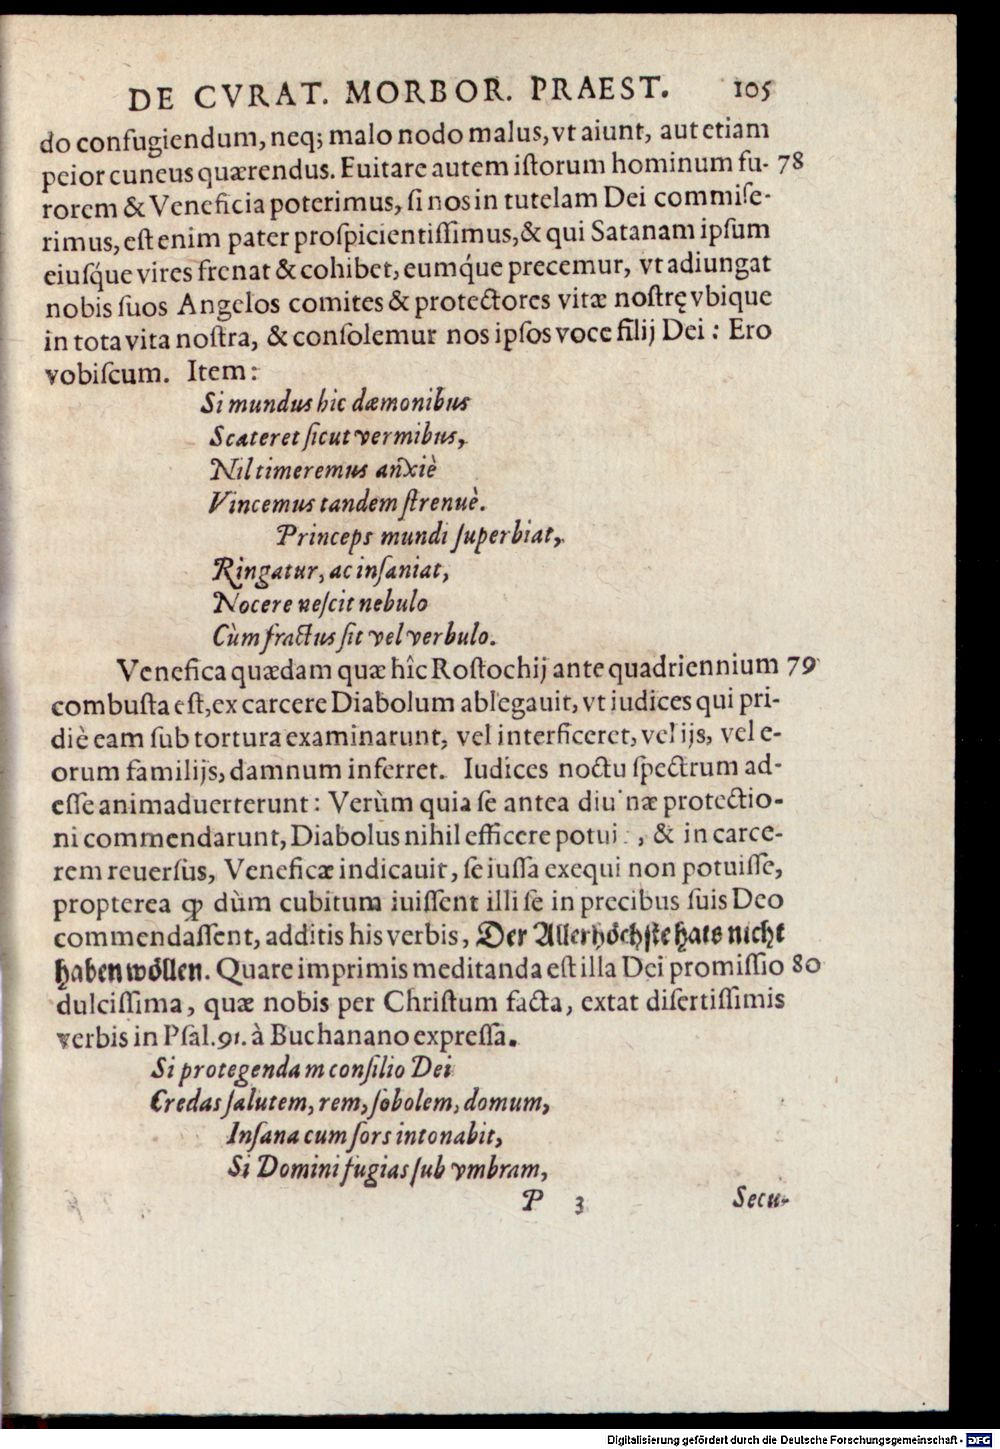 DE CVRAT. MORBOR. PRAEST. 105
do confugiendum, neq; malo nodo malus, vt aiunt, aut etiam
peior cuneus quærendus. Euitare autem iſtorum hominum fu- 78
rorem & Veneficia poterimus, ſi nos in tutelam Dei commiſe-
rimus, eſt enim pater proſpicientiſſimus, & qui Satanam ipſum
eiuſq́ue vires frenat & cohibet, eumq́ue precemur, vt adiungat
nobis ſuos Angelos comites & protectores vitæ noſtrę vbique
in tota vita noſtra, & conſolemur nos ipſos voce filij Dei: Ero
vobiſcum. Item:
Si mundus hic dæmonibus
Scateret ſicut vermibus,
Nil timeremus anxiè
Vincemus tandem ſtrenuè.
Princeps mundi ſuperbiat,
Ringatur, ac inſaniat,
Nocere neſcit nebulo
Cùm fractus ſit vel verbulo.
Venefica quædam quæ hîc Roſtochij ante quadriennium 79
combuſta eſt, ex carcere Diabolum ablegauit, vt iudices qui pri-
diè eam ſub tortura examinarunt, vel interficeret, vel ijs, vel e-
orum familijs, damnum inferret. Iudices noctu ſpectrum ad-
eſſe animaduerterunt: Verùm quia ſe antea diu næ protectio-
ni commendarunt, Diabolus nihil efficere potui , & in carce-
rem reuerſus, Veneficæ indicauit, ſe iuſſa exequi non potuiſſe,
propterea ꝙ dùm cubitum iuiſſent illi ſe in precibus ſuis Deo
commendaſſent, additis his verbis, Der Allerhöchſte hats nicht
haben wöllen. Quare imprimis meditanda eſt illa Dei promiſſio 80
dulciſſima, quæ nobis per Chriſtum facta, extat diſertiſſimis
verbis in Pſal. 91. à Buchanano expreſſa.
Si protegendam conſilio Dei
Credas ſalutem, rem, ſobolem, domum,
Inſana cum ſors intonabit,
Si Domini fugias ſub vmbram,
P 3 Secu-
Digitalisierung gefördert durch die Deutsche Forschungsgemeinschaft - DFG